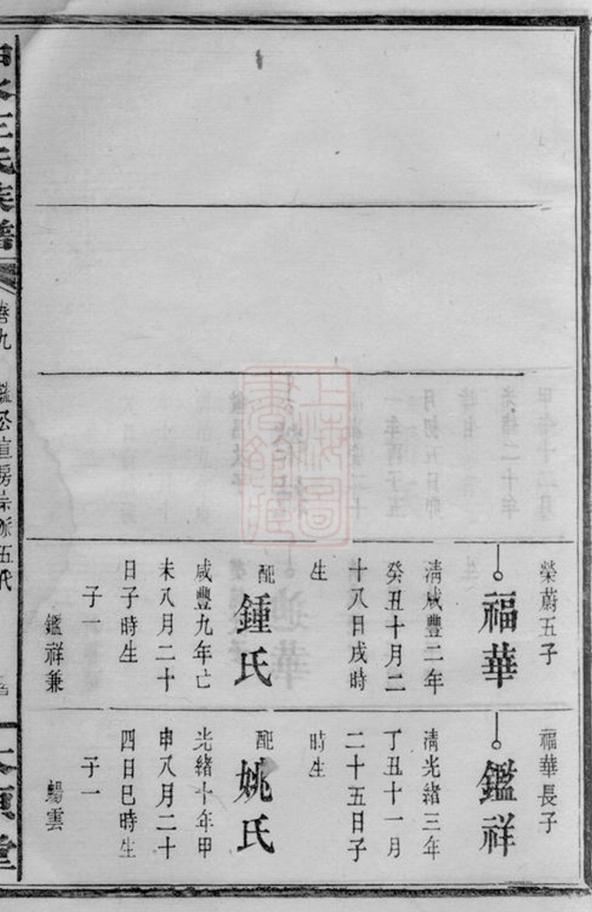 榮蔚五子
福華
清咸豐二年
癸丑十月二
十八日戌時
生
配
鍾氏
咸豐九年己
未八月二十
日子時生
子一
鑑祥兼
福華長子
鑑祥
清光緒三年
丁丑十一月
二十五日子
時生
配
姚氏
光緒十年甲
申八月二十
四日巳時生
子一
雲
王氏族譜
卷九